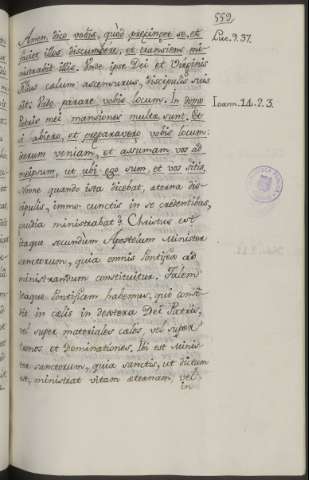 559.
Amen dico vobis, quòd præcinget se, et
faciet illos discumbere, et transiens mi-
nistrabit illis. Unde ipse Dei et Virginis
Filius cœlum ascensurus, discipulis suis
ait: Vado parare vobis locum. In domo
Patris mei mansiones multæ sunt. Et
si abiero, et præparavero vobis locum:
iterum veniam, et assumam vos ad
meipsum, ut ubi ego sum, et vos sitis.
Nonne quando ista dicebat, æterna dis-
cipulis, immo cunctis in se credentibus,
gaudia ministrabat? Christus est
itaque secundum Apostolum Minister
sanctorum, quia omnis Pontifex ad
ministrandum constituitur. Talem
itaque Pontificem habemus, qui consi-
dit in cœlis in dextera Dei Patris,
vel super materiales cœlos, vel super
Thronos et Dominationes. Ibi est Minis-
ter sanctorum, quia sanctis, ut dictum
est, ministrat vitam æternam, vel
in
Luc. 9. 37.
Ioann. 14. 2. 3.